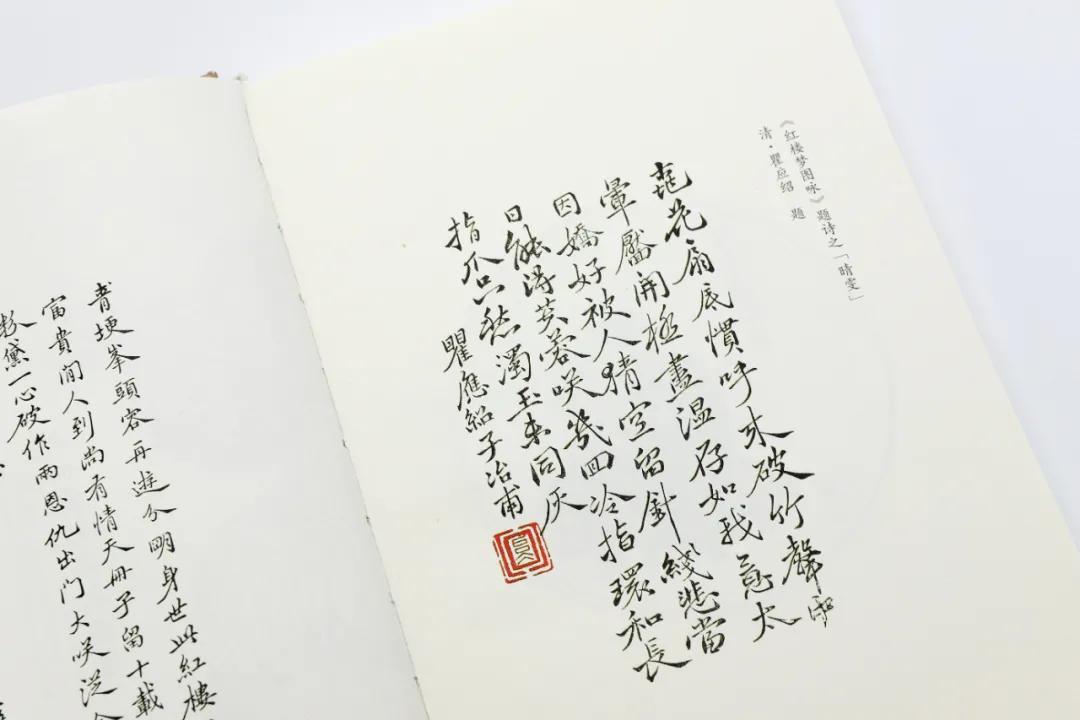 《红楼梦图咏》题诗之「晴雯」
清·瞿应绍 题
花扇底慣呼来破竹聲
暈靨開極盡温存如我意太
因嬌好被人猜空留針綫悲當
日能得芙蓉咲幾回冷指環和長
指爪只愁濁玉未同灰
瞿應紹子冶甫
青埂峯頭容再遊分明身世此紅樓
富貴閒人到尚有情天冊子留十載
粉黛一心破作兩恩仇出門大咲從